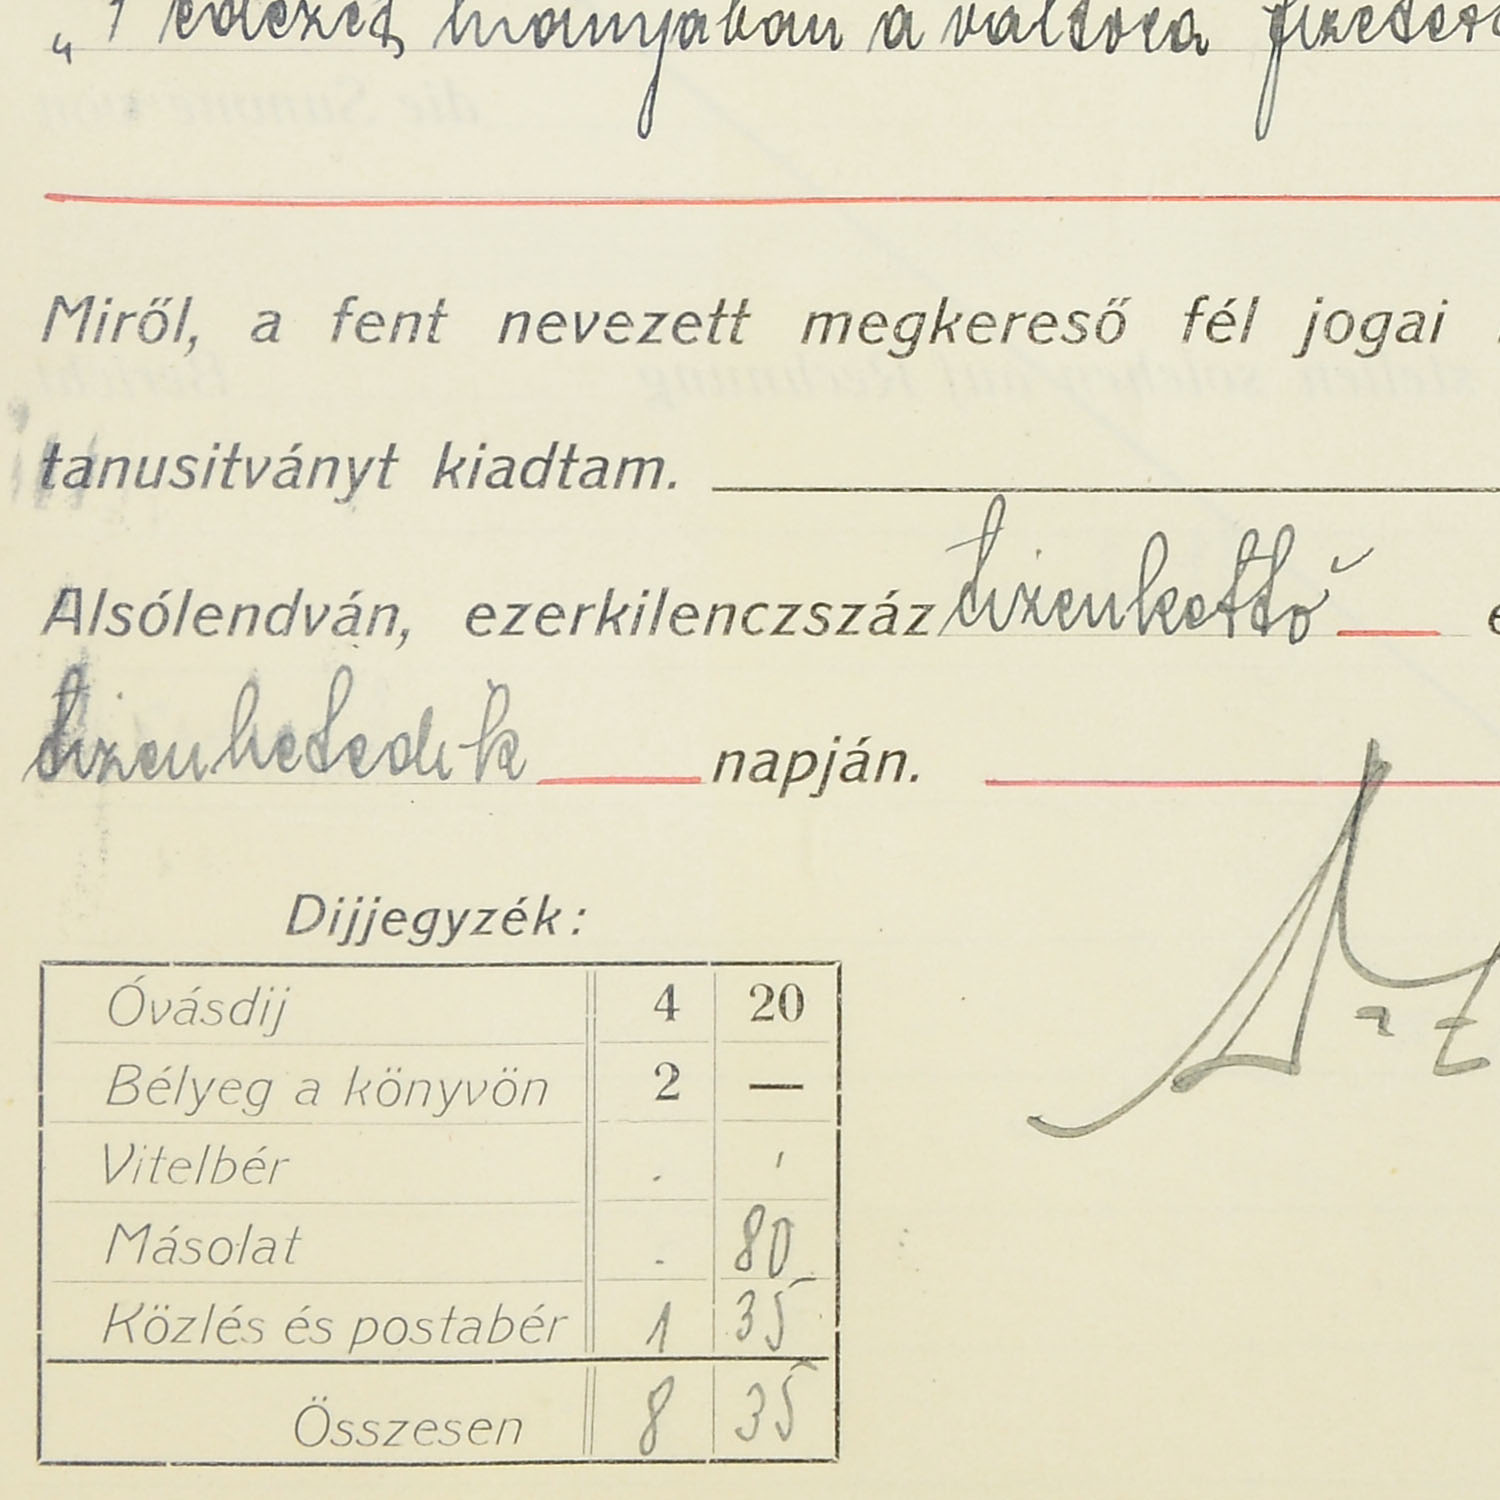 „Fedezet hiányában a váltóra fizetést
Miről, a fent nevezett megkereső fél jogai
tanusitványt kiadtam.
Alsólendván, ezerkilenczszáz tizenkettő
tizenhetedik napján.
Dijjegyzék:
Óvásdij 4 20
Bélyeg a könyvön 2 —
Vitelbér . '
Másolat . 80
Közlés és postabér 1 35
Összesen 8 35